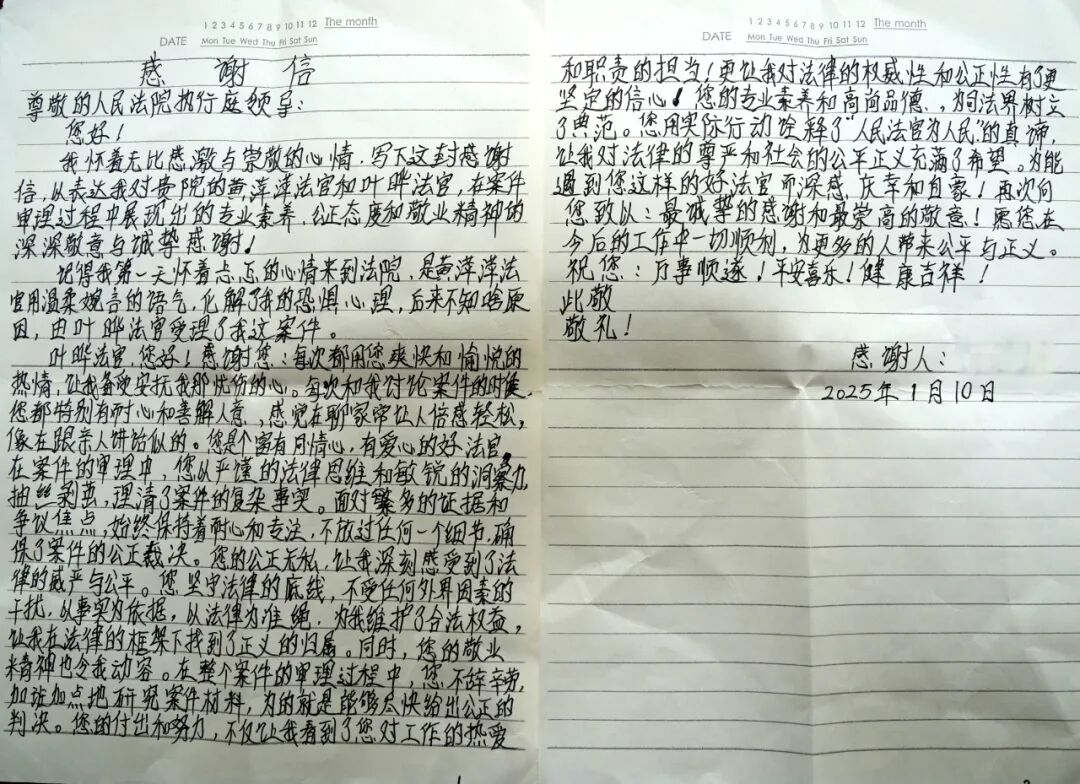 1 2 3 4 5 6 7 8 9 10 11 12 The month
DATE Mon Tue Wed Thu Fri Sat Sun
感谢信
尊敬的人民法院执行庭领导：
您好！
我怀着无比感激与崇敬的心情，写下这封感谢
信，从表达我对贵院的黄萍萍法官和叶晔法官，在案件
审理过程中展现出的专业素养，公正态度和敬业精神的
深深敬意与诚挚感谢！
记得我第一天怀着忐忑的心情来到法院，是黄萍萍法
官用温柔婉言的语气，化解了我的恐惧心理，后来不知啥原
因，由叶晔法官受理了我这案件。
叶晔法官，您好！感谢您：每次都用您爽快和愉悦的
热情，让我备受安抚我那忧伤的心。每次和我讨论案件的时候，
您都特别有耐心和善解人意，感觉在聊家常让人倍感轻松，
像在跟亲人讲话似的。您是个富有同情心，有爱心的好法官，
在案件的审理中，您以严谨的法律思维和敏锐的洞察力，
抽丝剥茧，理清了案件的复杂事实。面对繁多的证据和
争议焦点，始终保持着耐心和专注，不放过任何一个细节，确
保了案件的公正裁决。您的公正无私，让我深刻感受到了法
律的威严与公平。您坚守法律的底线，不受任何外界因素的
干扰，以事实为依据，以法律为准绳，为我维护了合法权益，
让我在法律的框架下找到了正义的归属。同时，您的敬业
精神也令我动容。在整个案件的审理过程中，您不辞辛劳，
加班加点地研究案件材料，为的就是能够尽快给出公正的
判决。您的付出和努力，不仅让我看到了您对工作的热爱
1
1 2 3 4 5 6 7 8 9 10 11 12 The month
DATE Mon Tue Wed Thu Fri Sat Sun
和职责的担当！更让我对法律的权威性和公正性有了更
坚定的信心！您的专业素养和高尚品德，为司法界树立
了典范。您用实际行动诠释了“人民法官为人民”的真谛，
让我对法律的尊严和社会的公平正义充满了希望。为能
遇到您这样的好法官而深感庆幸和自豪！再次向
您致以：最诚挚的感谢和最崇高的敬意！愿您在
今后的工作中一切顺利，为更多的人带来公平与正义。
祝您：万事顺遂！平安喜乐！健康吉祥！
此敬
敬礼！
感谢人：
2025年1月10日